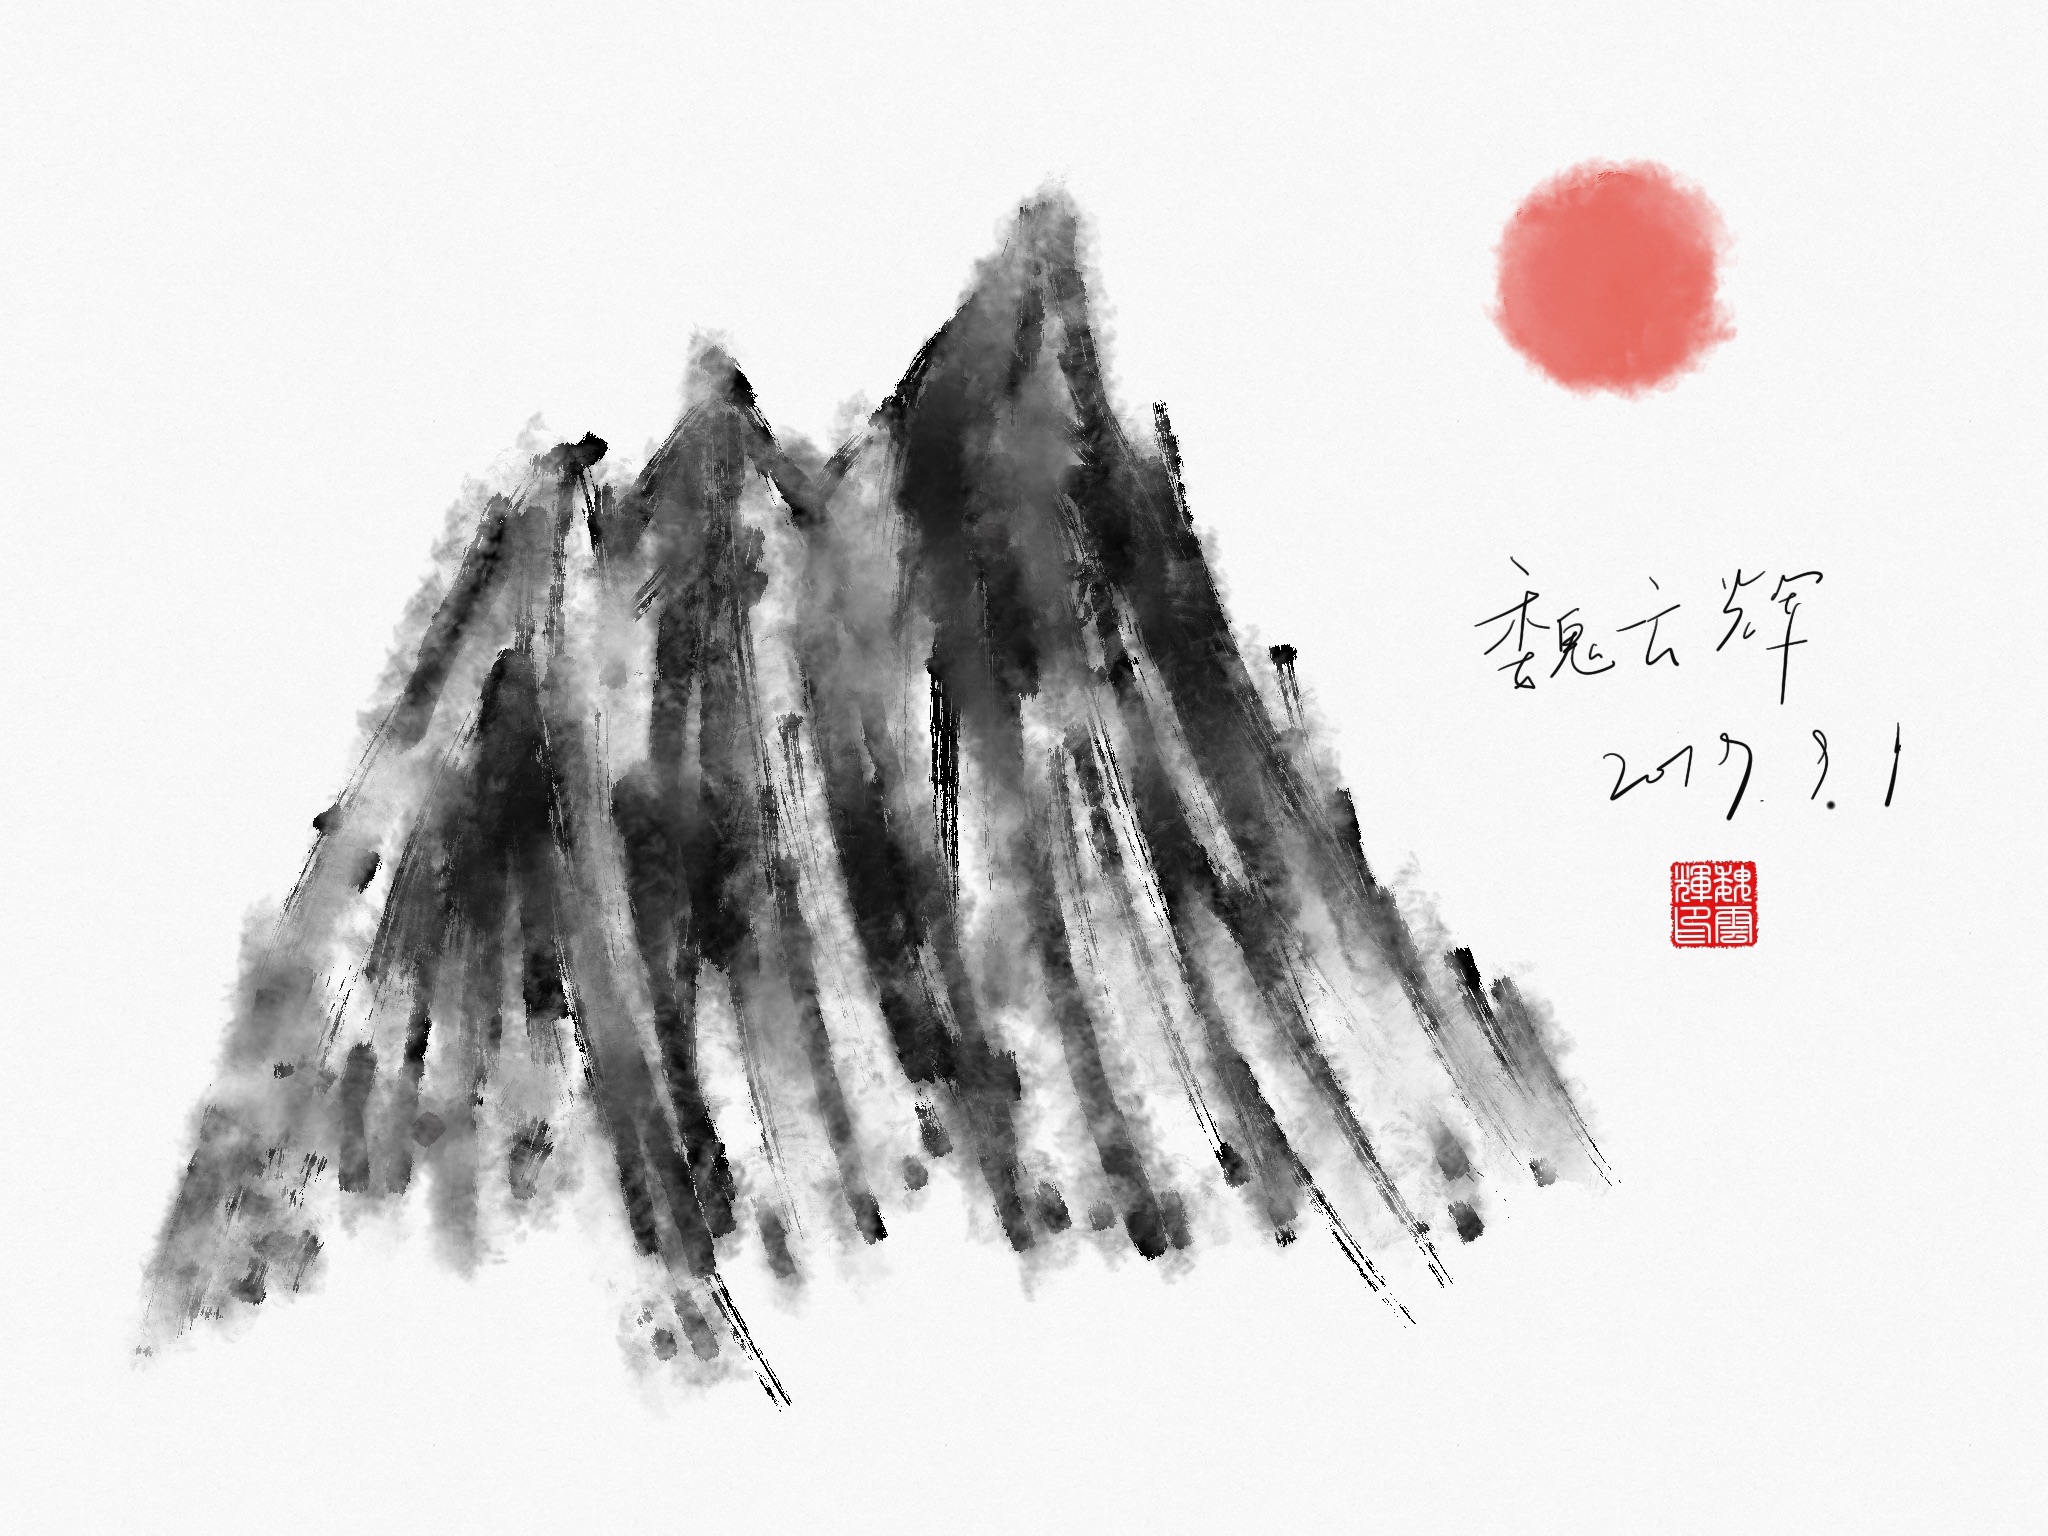 魏云辉
2017.9.1
魏雲輝印